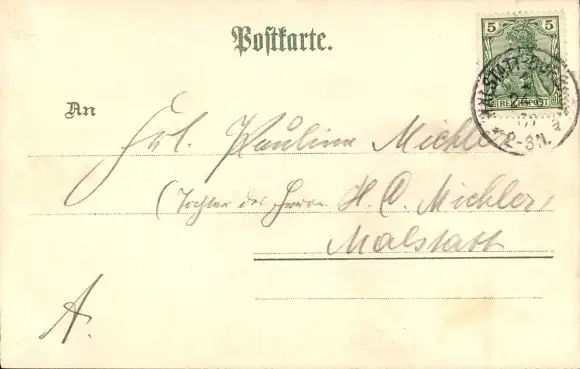 Postkarte.
5 5
REICHSPOST
MALSTATT-BURBACH
2-3N.
An
Frl. Pauline Michler
(Tochter des Herrn H. C. Michler,
Malstatt
A.